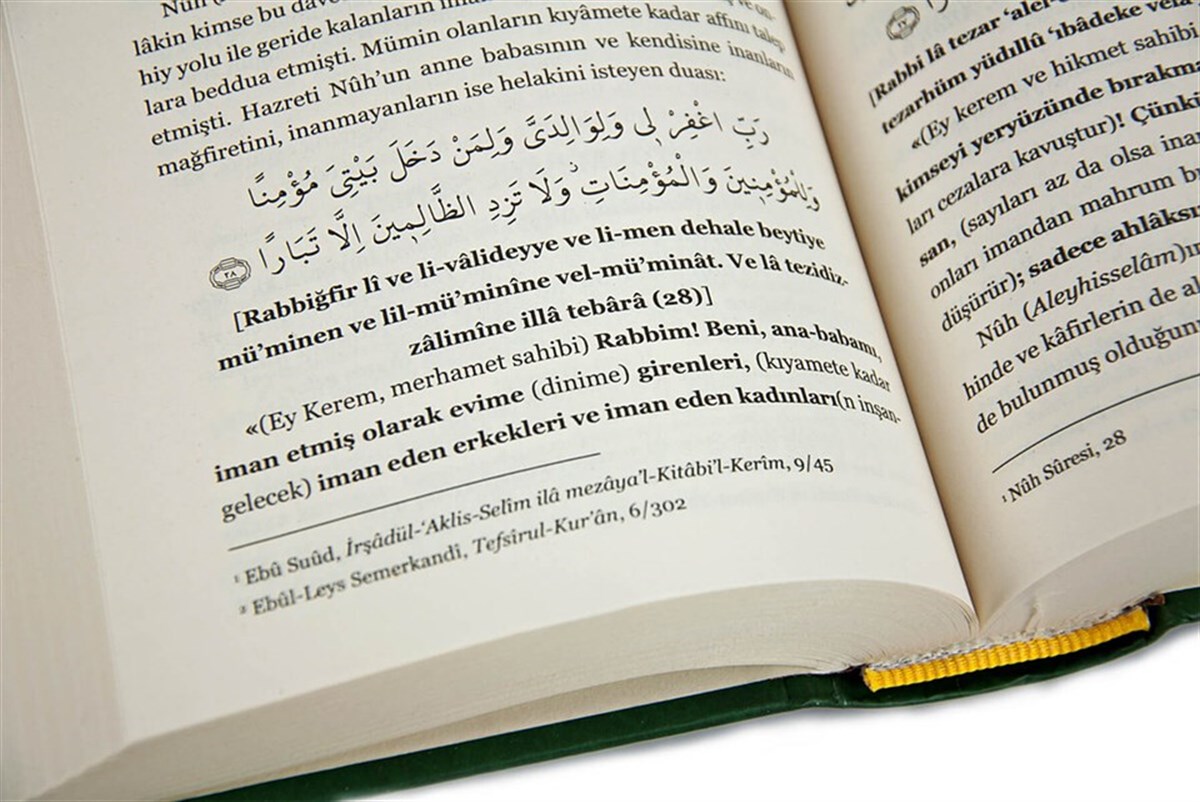 Nûh
lâkin kimse bu
hiy yolu ile geride kalanların
lara beddua etmişti. Mümin olanların kıyâmete kadar affını talep
etmişti. Hazreti Nûh’un anne babasının ve kendisine inananların
mağfiretini, inanmayanların ise helakini isteyen duası:
رَبِّ اغْفِرْ ل۪ي وَلِوَالِدَيَّ وَلِمَنْ دَخَلَ بَيْتِيَ مُؤْمِنًا
وَلِلْمُؤْمِن۪ينَ وَالْمُؤْمِنَاتِ وَلَا تَزِدِ الظَّالِم۪ينَ اِلَّا تَبَارًا ٢٨
[Rabbiğfir lî ve li-vâlideyye ve li-men dehale beytiye
mü’minen ve lil-mü’minîne vel-mü’minât. Ve lâ tezidiz-
zâlimîne illâ tebârâ (28)]
«(Ey Kerem, merhamet sahibi) Rabbim! Beni, ana-babamı,
iman etmiş olarak evime (dinime) girenleri, (kıyamete kadar
gelecek) iman eden erkekleri ve iman eden kadınları(n inşan-
¹ Ebû Suûd, İrşâdül-‘Aklis-Selîm ilâ mezâya’l-Kitâbi’l-Kerîm, 9/45
² Ebûl-Leys Semerkandî, Tefsîrul-Kur’ân, 6/302
[Rabbi lâ tezar ‘alel-
tezarhüm yüdıllû ‘ıbâdeke velâ
«(Ey kerem ve hikmet sahibi
kimseyi yeryüzünde bırakma
ları cezalara kavuştur)! Çünkü
san, (sayıları az da olsa
onları imandan mahrum
düşürür); sadece
Nûh (Aleyhisselâm)
hinde ve kâfirlerin de
de bulunmuş
¹ Nûh Sûresi, 28